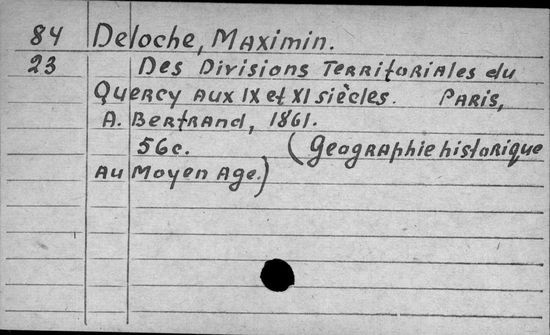 84 Deloche, Maximin.
23 Des Divisions Territoriales du
Quercy aux IX et XI siècles. Paris,
A. Bertrand, 1861.
56c. (Geographie historique
au Moyen Age.)